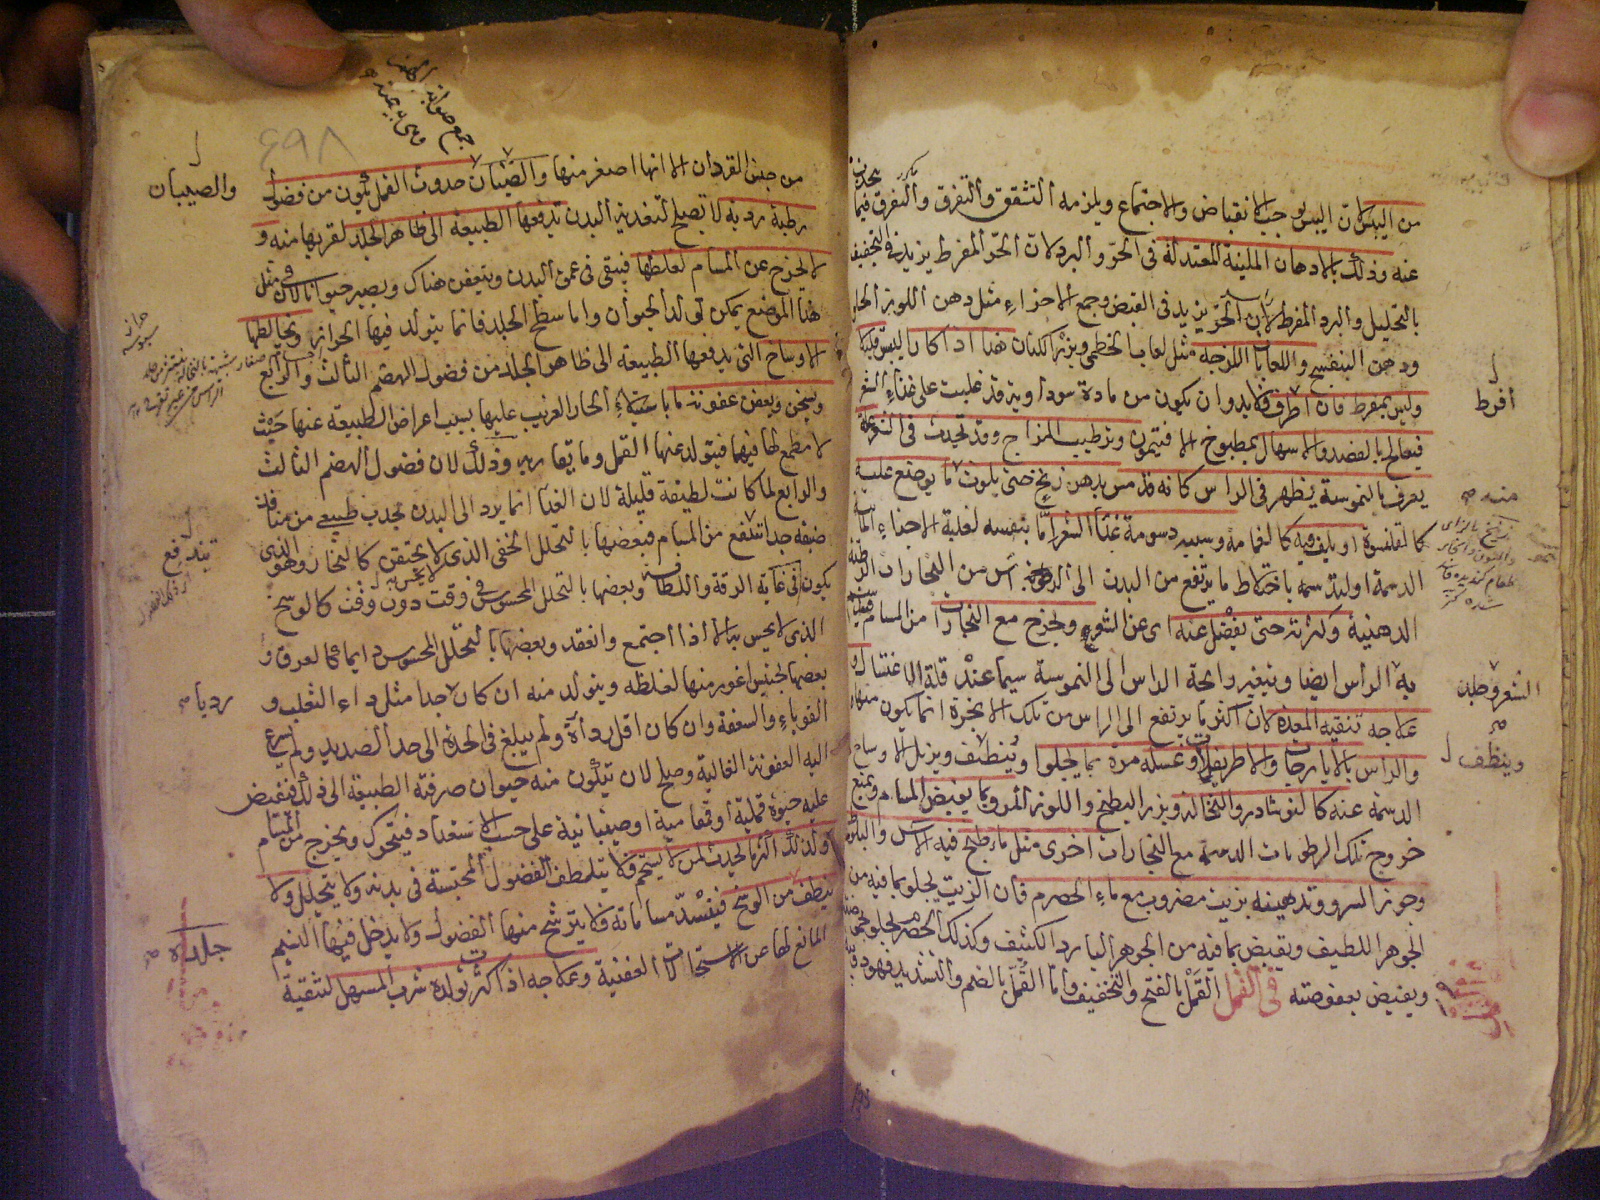 من اليبس لان اليبس يوجب الانقباض والاجتماع ويلزمه التشقق والتفرق والتفرق فيما
عنه وذلك بالادهان الملينة المعتدلة في الحر والبرد لان الحر المفرط يزيد في التجفيف
بالتحليل والبرد المفرط يزيد في القبض وجمع الاجزاء مثل دهن اللوز الحلو
ودهن البنفسج واللعابات اللزجة مثل لعاب الخطمي وبزر الكتان هذا اذا كان اليبس قليلا
وليس بمفرط فان افرط فلا بد وان يكون من مادة سوداوية قد غلبت على غذاء الشعر
فيعالج بالفصد والاسهال بمطبوخ الافتيمون وترطيب المزاج وقد تحدث في
يعرف بالنموسة يظهر في الراس كانه قد مس بدهن زنخ حتى يلوث ما يوضع عليه
كالقلنسوة او يلف فيه كالعمامة وسببه دسومة غذاء الشعر اما بنفسه لغلبة الاجزاء
الدسمة او لتدسمه باختلاط ما يرتفع من البدن الى الراس من البخارات الرطبة
الدهنية وكثرته حتى يفضل عنه اى عن الشعر ويخرج مع البخارات من المسام
به الراس ايضا ويتغير رائحة الراس الى النموسة سيما عند قلة الاغتسال و
علاجه تنقية المعدة لان اكثر ما يرتفع الى الراس من تلك الابخرة انما يكون منها
والراس بالايارجات والاطريفلات وغسله مرة بما يجلوا وينظف ويزيل الاوساخ
الدسمة عنه كالنوشادر والنخالة وبزر البطيخ واللوز المر وبما يقبض المسام ويمنع
خروج تلك الرطوبات الدسمة مع البخارات اخرى مثل ماء طبخ فيه الاس والبلوط
وجوز السرو وتدهينه بزيت مضروب مع ماء الحصرم فان الزيت يجلو بما فيه من
الجوهر اللطيف ويقبض بما فيه من الجوهر البارد الكثيف وكذلك الحصرم يجلو
ويقبض بعفوصته في القمل القمل بالفتح والتخفيف واما القمل بالضم والتشديد فهو
افرط
الشعر وجلد
وينظف
٤٩٨
من جنس القردان الا انها اصغر منها والصئبان حدوث القمل يكون من فضول
رطبة ردية لا تصلح لتغذية البدن تدفعها الطبيعة الى ظاهر الجلد لقربها منه و
لا يخرج عن المسام لغلظها فيبقى في عمق البدن ويتعفن هناك ويصير حيوانا لان في مثل
هذا الموضع يمكن تولد الحيوان واما سطح الجلد فانما يتولد فيها الحزاز ويخالطها
الاوساخ التي يدفعها الطبيعة الى ظاهر الجلد من فضول الهضم الثالث والرابع
ويسخن ويعفن عفونة ما باستيلاء الحار الغريب عليها بسبب اعراض الطبيعة عنها حيث
لا مطمع لها فيها فيتولد عنها القمل وما يقاربه وذلك لان فضول الهضم الثالث
والرابع لما كانت لطيفة قليلة لان الغذاء انما يرد الى البدن بجذب طبيعي من منافذ
ضيقة جدا تندفع من المسام فبعضها بالتحلل الخفي الذي لا يحتقن كالبخار والذي
يكون في غاية الرقة واللطافة وبعضها بالتحلل المحسوس في وقت دون وقت كالوسخ
الذي لا يحس به الا اذا اجتمع وانعقد وبعضها بالتحلل المحسوس دايما كالعرق و
بعضها يحتبس اغور منها لغلظه ويتولد منه ان كان جدا مثل داء الثعلب و
القوباء والسعفة وان كان اقل رداءة ولم يبلغ في الحدة الى حد الصديد ولم يسرع
اليه العفونة الغالية وصلح لان يتكون منه حيوان صرفته الطبيعة الى ذلك فتفيض
عليه حيوة قملية او قمقامية او صيبانية على حسب الاستعداد فيتحرك ويخرج من المسام
ولذلك اكثر ما يحدث لمن لا يستحم فلا يتلطف الفضول المحتبسة في بدنه ولا يتحلل ولا
ينظف من الوسخ فينسد مساماته فلا يترشح منها الفضول ولا يدخل فيها النسيم
المانع لها عن الاستحالات العفنية وعلاجه اذا اكثر تولده شرب المسهل لتنقية
والصيبان
تندفع
رديا
جلده